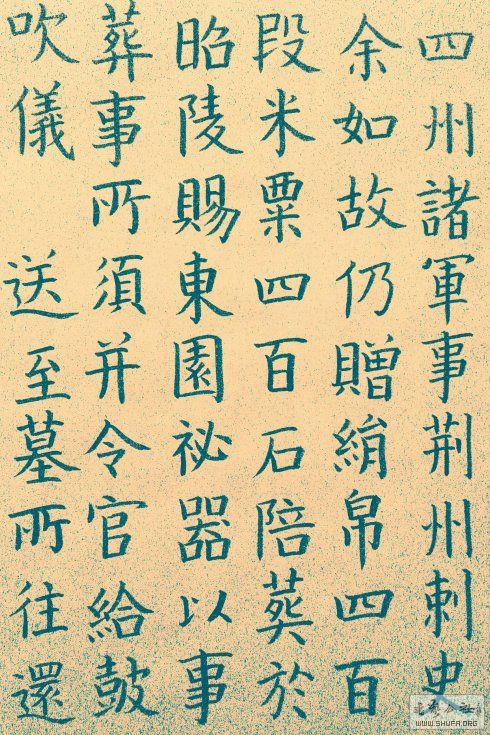 四州諸軍事荆州刺史
余如故仍贈絹帛四百
段米粟四百石陪葬於
昭陵賜東園祕器以事
葬事所須并令官給鼓
吹儀 送至墓所往還
WWW.SHUFA.ORG